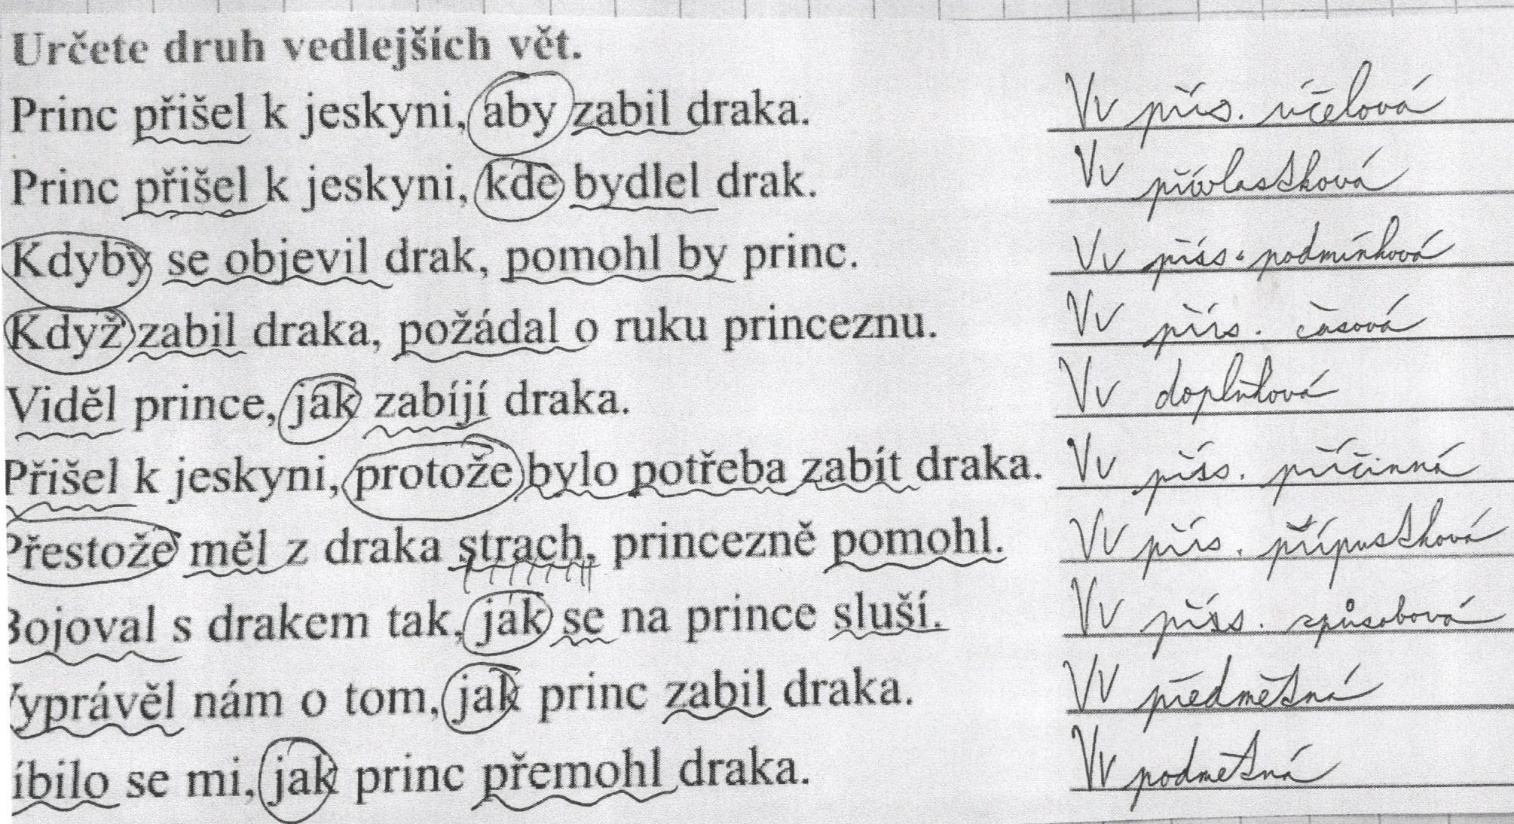 Určete druh vedlejších vět.
Princ přišel k jeskyni, aby zabil draka. Vv přís. účelová
Princ přišel k jeskyni, kde bydlel drak. Vv přívlastková
Kdyby se objevil drak, pomohl by princ. Vv přís. podmínková
Když zabil draka, požádal o ruku princeznu. Vv přís. časová
Viděl prince, jak zabíjí draka. Vv doplňková
Přišel k jeskyni, protože bylo potřeba zabít draka. Vv přís. příčinná
Přestože měl z draka strach, princezně pomohl. Vv přís. přípustková
Bojoval s drakem tak, jak se na prince sluší. Vv přís. způsobová
Vyprávěl nám o tom, jak princ zabil draka. VV předmětná
íbilo se mi, jak princ přemohl draka. VV podmětná